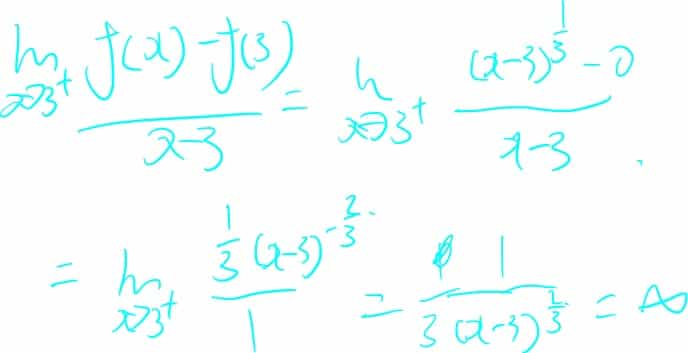 lim x→3⁺ (f(x) - f(3))/(x-3) = lim x→3⁺ ((x-3)^(1/3) - 0)/(x-3) .
= lim x→3⁺ (1/3 (x-3)^(-2/3))/1 = 1/(3(x-3)^(2/3)) = ∞